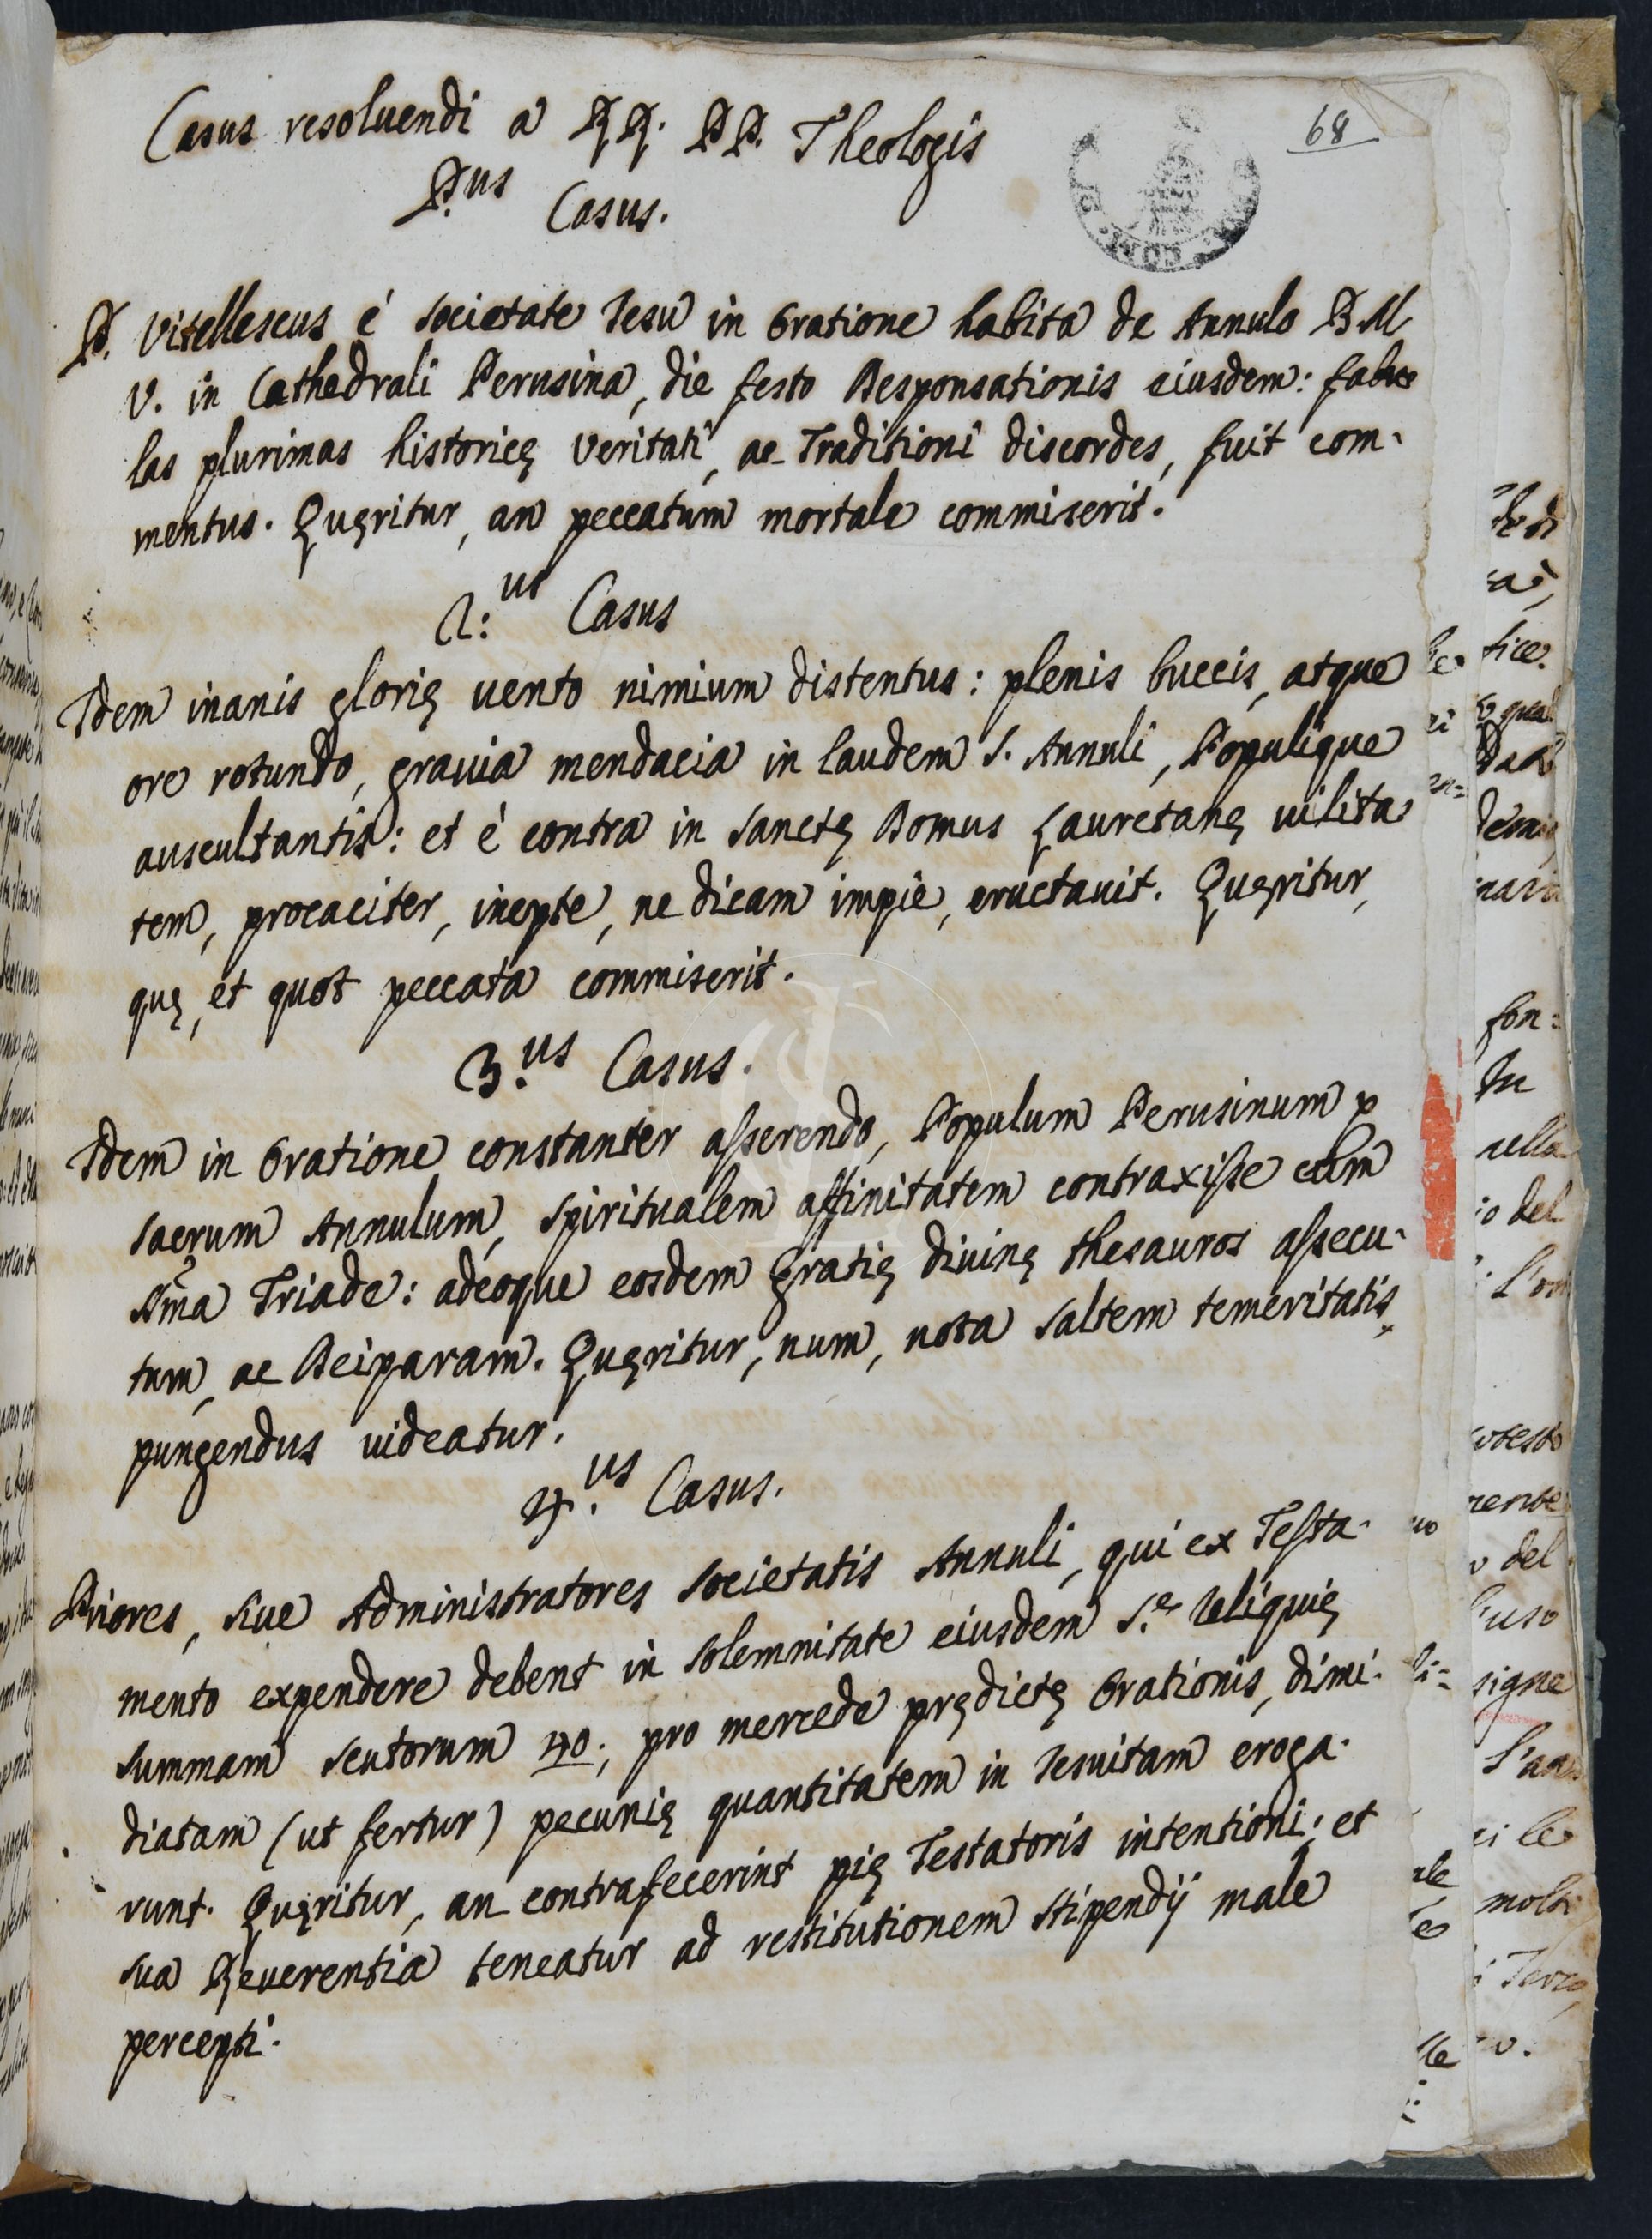 68
Casus resoluendi a RR. PP. Theologis
P.us Casus.
P. Vitellescus é Societate Iesu in Oratione habita de Annulo B M
V. in Cathedrali Perusina, die festo Desponsationis eiusdem: fabu
las plurimas historicę veritati, ac Traditioni discordes, fuit com-
mentus. Quęritur, an peccatum mortale commiserit.
2.us Casus
Idem inanis glorię uento nimium distentus: plenis buccis, atque
ore rotundo, grauia mendacia in laudem S. Annuli, Populique
auscultantis: et é contra in Sanctę Domus Lauretanę uilita
tem, procaciter, inepte, ne dicam impie, eructauit. Quęritur,
quę, et quot peccata commiserit.
3.us Casus.
Idem in Oratione constanter asserendo, Populum Perusinum p
sacrum Annulum, Spiritualem affinitatem contraxisse cum
SSma Triade: adeoque eosdem gratię diuinę thesauros assecu-
tum, ac Deiparam. Quęritur, num, nota saltem temeritatis,
pungendus uideatur.
4.us Casus.
Priores, siue Administratores Societatis Annuli, qui ex Testa-
mento expendere debent in solemnitate eiusdem S.e Reliquię
summam scutorum 40., pro mercede prędictę Orationis, dimi-
diatam (ut fertur) pecunię quantitatem in Iesuitam eroga-
runt. Quęritur, an contrafecerint pię Testatoris intentioni; et
sua Reuerentia teneatur ad restitutionem stipendij male
percepti.